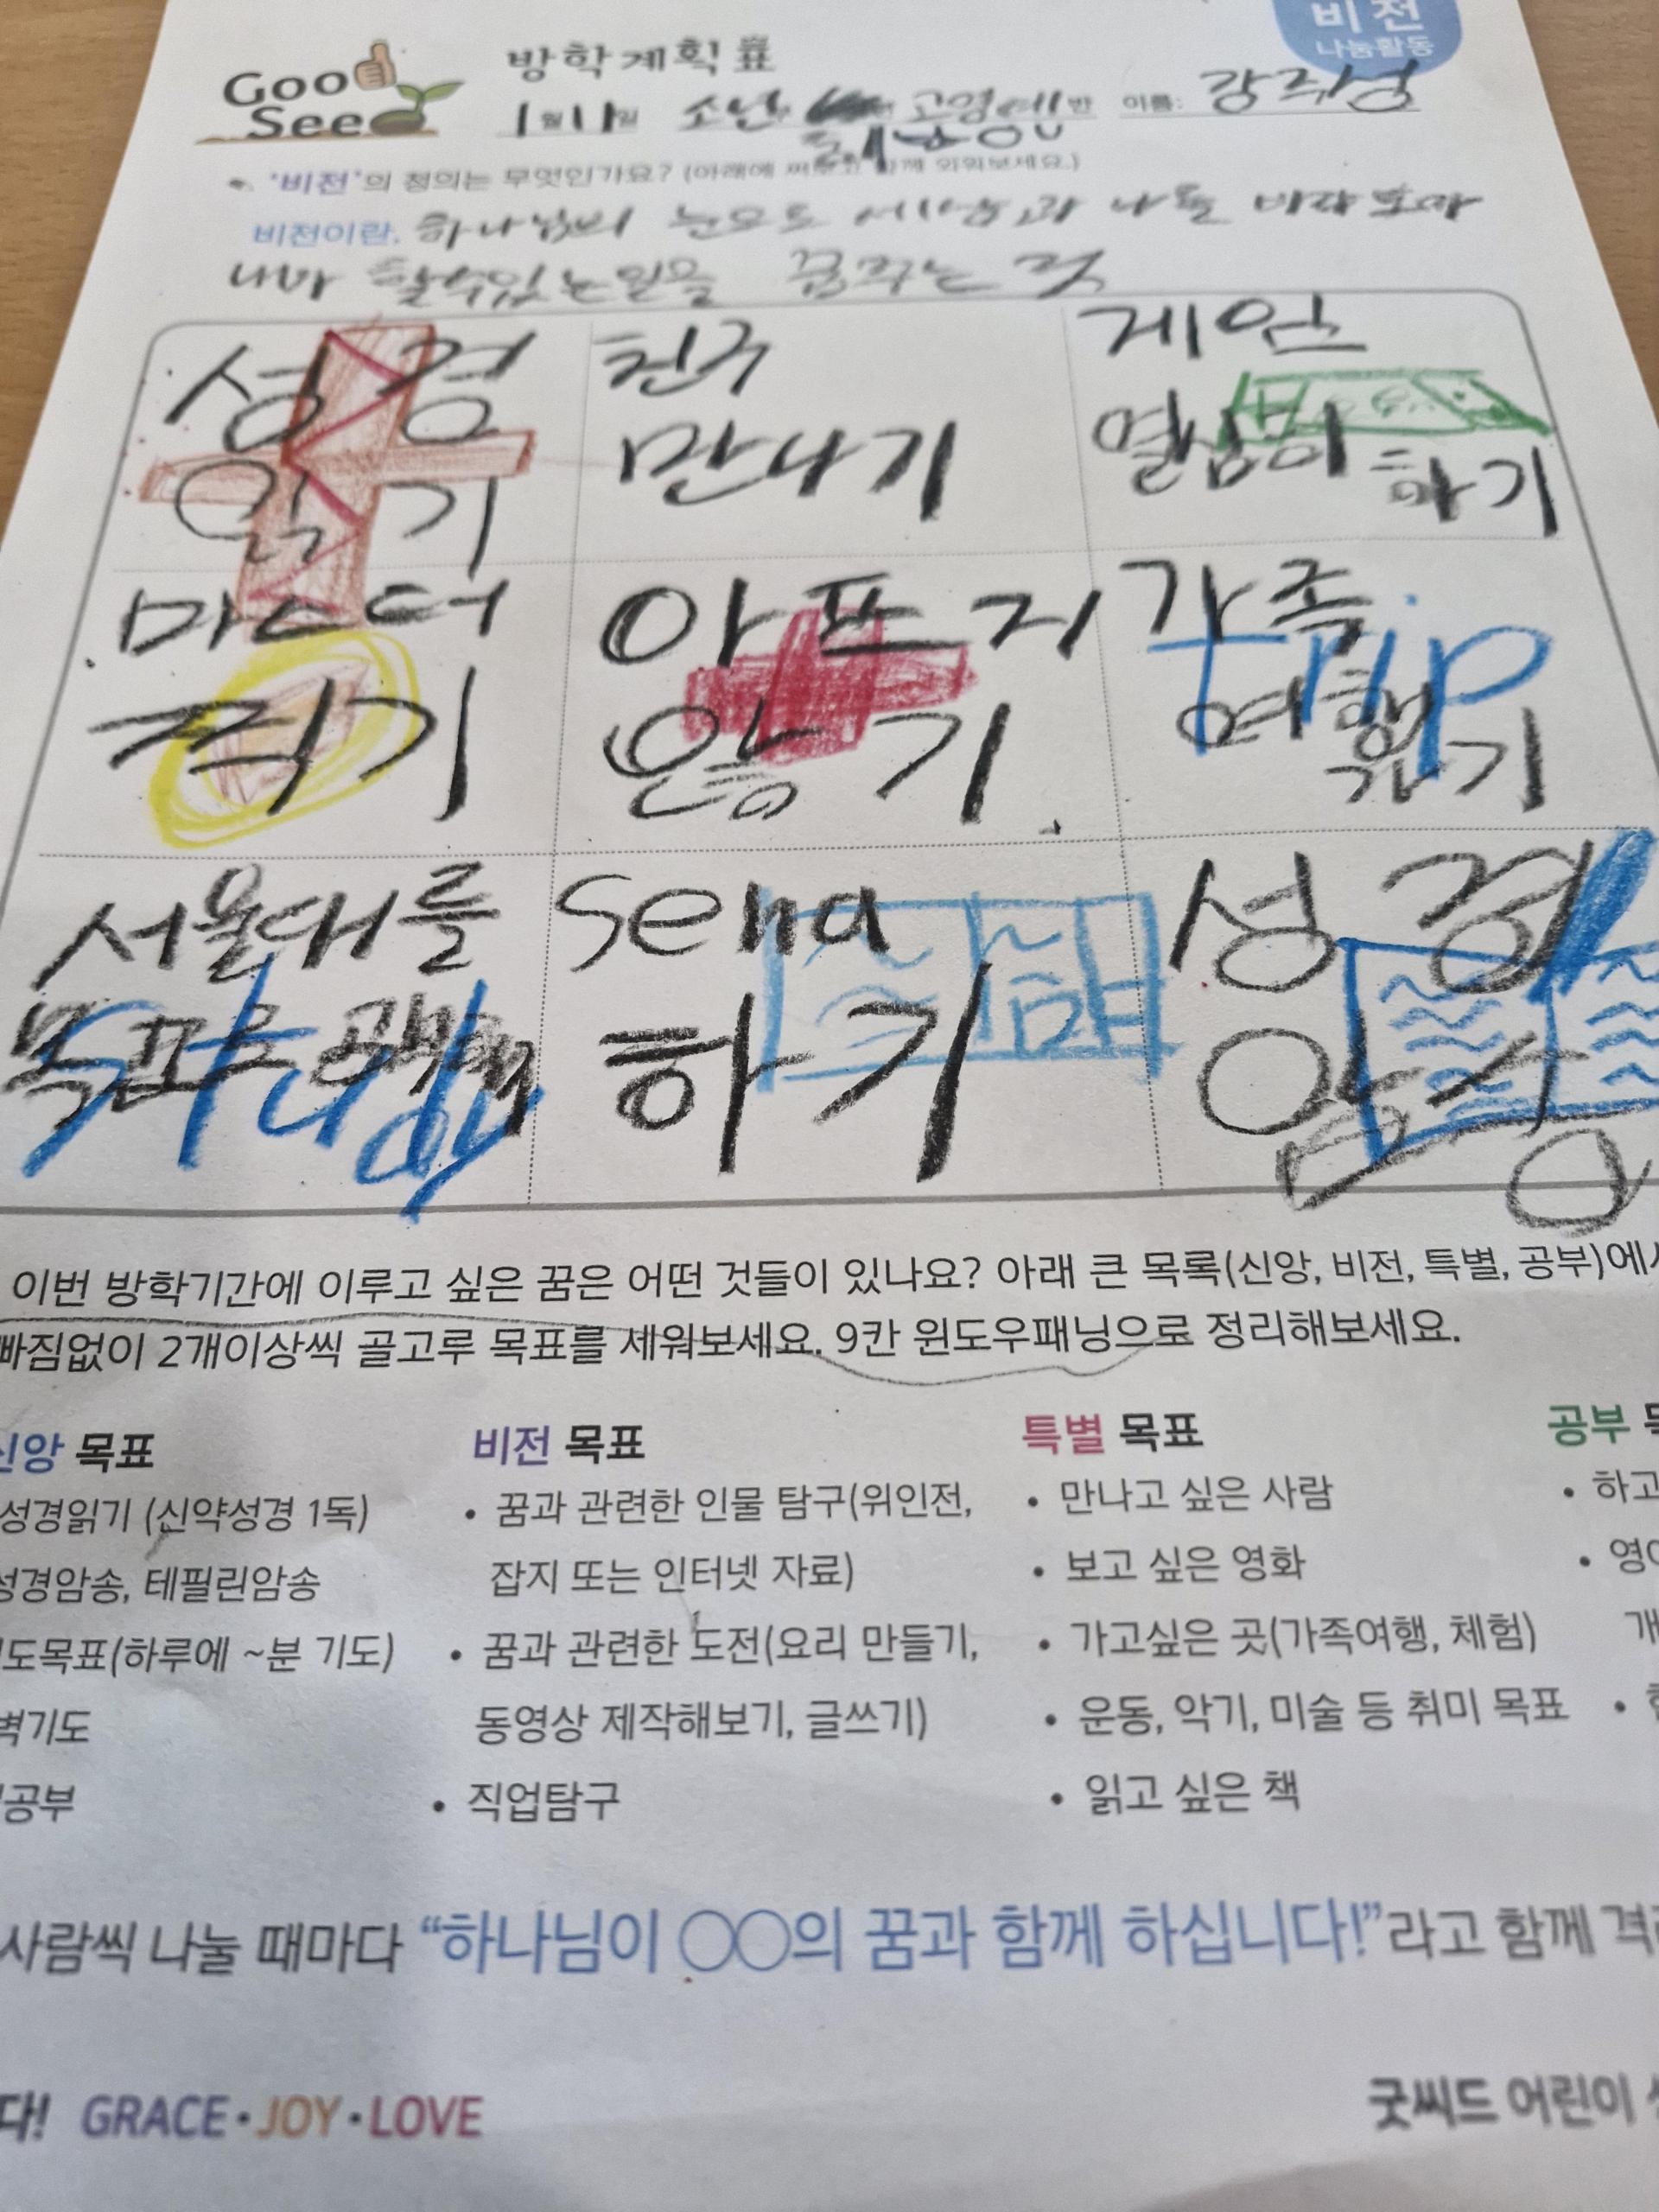 비전
나눔활동
Good
Seed
방학계획표
1월 11일 소년 고영예 반 이름: 강주성
'비전'의 정의는 무엇인가요? (아래에 써보고 함께 외워보세요.)
비전이란, 하나님의 눈으로 세상과 나를 바라보며
내가 할수있는일을 꿈꾸는 것
성경
읽기
친구
만나기
게임
열심히
하기
마스터
찍기
아프지
않기
가족
trip
여행
가기
서울대를
목표로 공부
study
sena
하기
성경
암송
이번 방학기간에 이루고 싶은 꿈은 어떤 것들이 있나요? 아래 큰 목록(신앙, 비전, 특별, 공부)에서
빠짐없이 2개이상씩 골고루 목표를 세워보세요. 9칸 윈도우패닝으로 정리해보세요.
신앙 목표
성경읽기 (신약성경 1독)
성경암송, 테필린암송
도목표(하루에 ~분 기도)
벽기도
공부
비전 목표
• 꿈과 관련한 인물 탐구(위인전,
잡지 또는 인터넷 자료)
• 꿈과 관련한 도전(요리 만들기,
동영상 제작해보기, 글쓰기)
• 직업탐구
특별 목표
• 만나고 싶은 사람
• 보고 싶은 영화
• 가고싶은 곳(가족여행, 체험)
• 운동, 악기, 미술 등 취미 목표
• 읽고 싶은 책
공부
• 하고
• 영어
개
사람씩 나눌 때마다 “하나님이 ○○의 꿈과 함께 하십니다!”라고 함께 격려
다! GRACE·JOY·LOVE
굿씨드 어린이